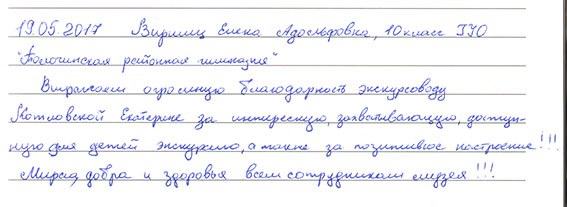 19.05.2017 Вирлиц Елена Адольфовка, 10 класс ГУО
"Толочинская районная гимназия"
Выражаем огромную благодарность экскурсоводу
Котловской Екатерине за интересную, захватывающую, доступ-
ную для детей экскурсию, а также за позитивное настроение!!!
Мира, добра и здоровья всем сотрудникам музея!!!